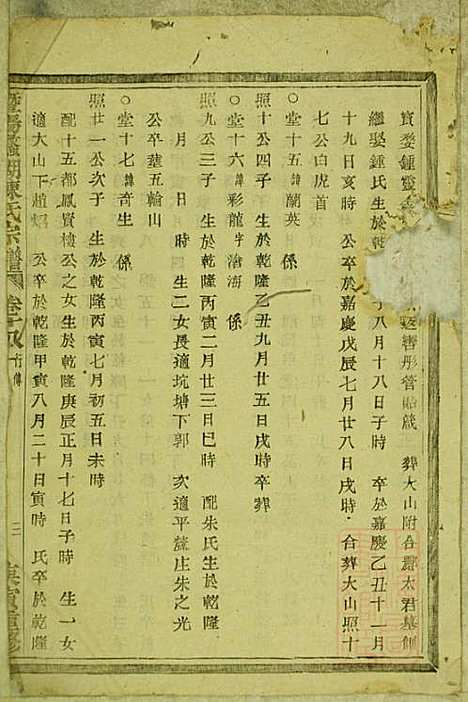 寅婺鍾靈 彤管貽箴 葬大山附合 太君墓側
繼娶鍾氏生於乾 八月十八日子時 卒於嘉慶乙丑十一月
十九日亥時 公卒於嘉慶戊辰七月廿八日戌時 合葬大山照十
七公白虎首
○堂十五諱蘭英 係
照十公四子 生於乾隆乙丑九月廿五日戌時卒葬
○堂十六諱彩龍字滄海 係
照九公三子 生於乾隆丙寅二月廿三日巳時 配朱氏生於乾隆
月 日 時 生二女長適坑塘下郭 次適平 庄朱之光
公卒葬五輪山
○堂十七諱奇生 係
照廿一公次子 生於乾隆丙寅七月初五日未時
配十五都鳳賓樓公之女生於乾隆庚辰正月十七日子時 生一女
適大山下趙 公卒於乾隆甲寅八月二十日寅時 氏卒於乾隆
暨陽 湖陳氏宗譜 卷 行傳 二